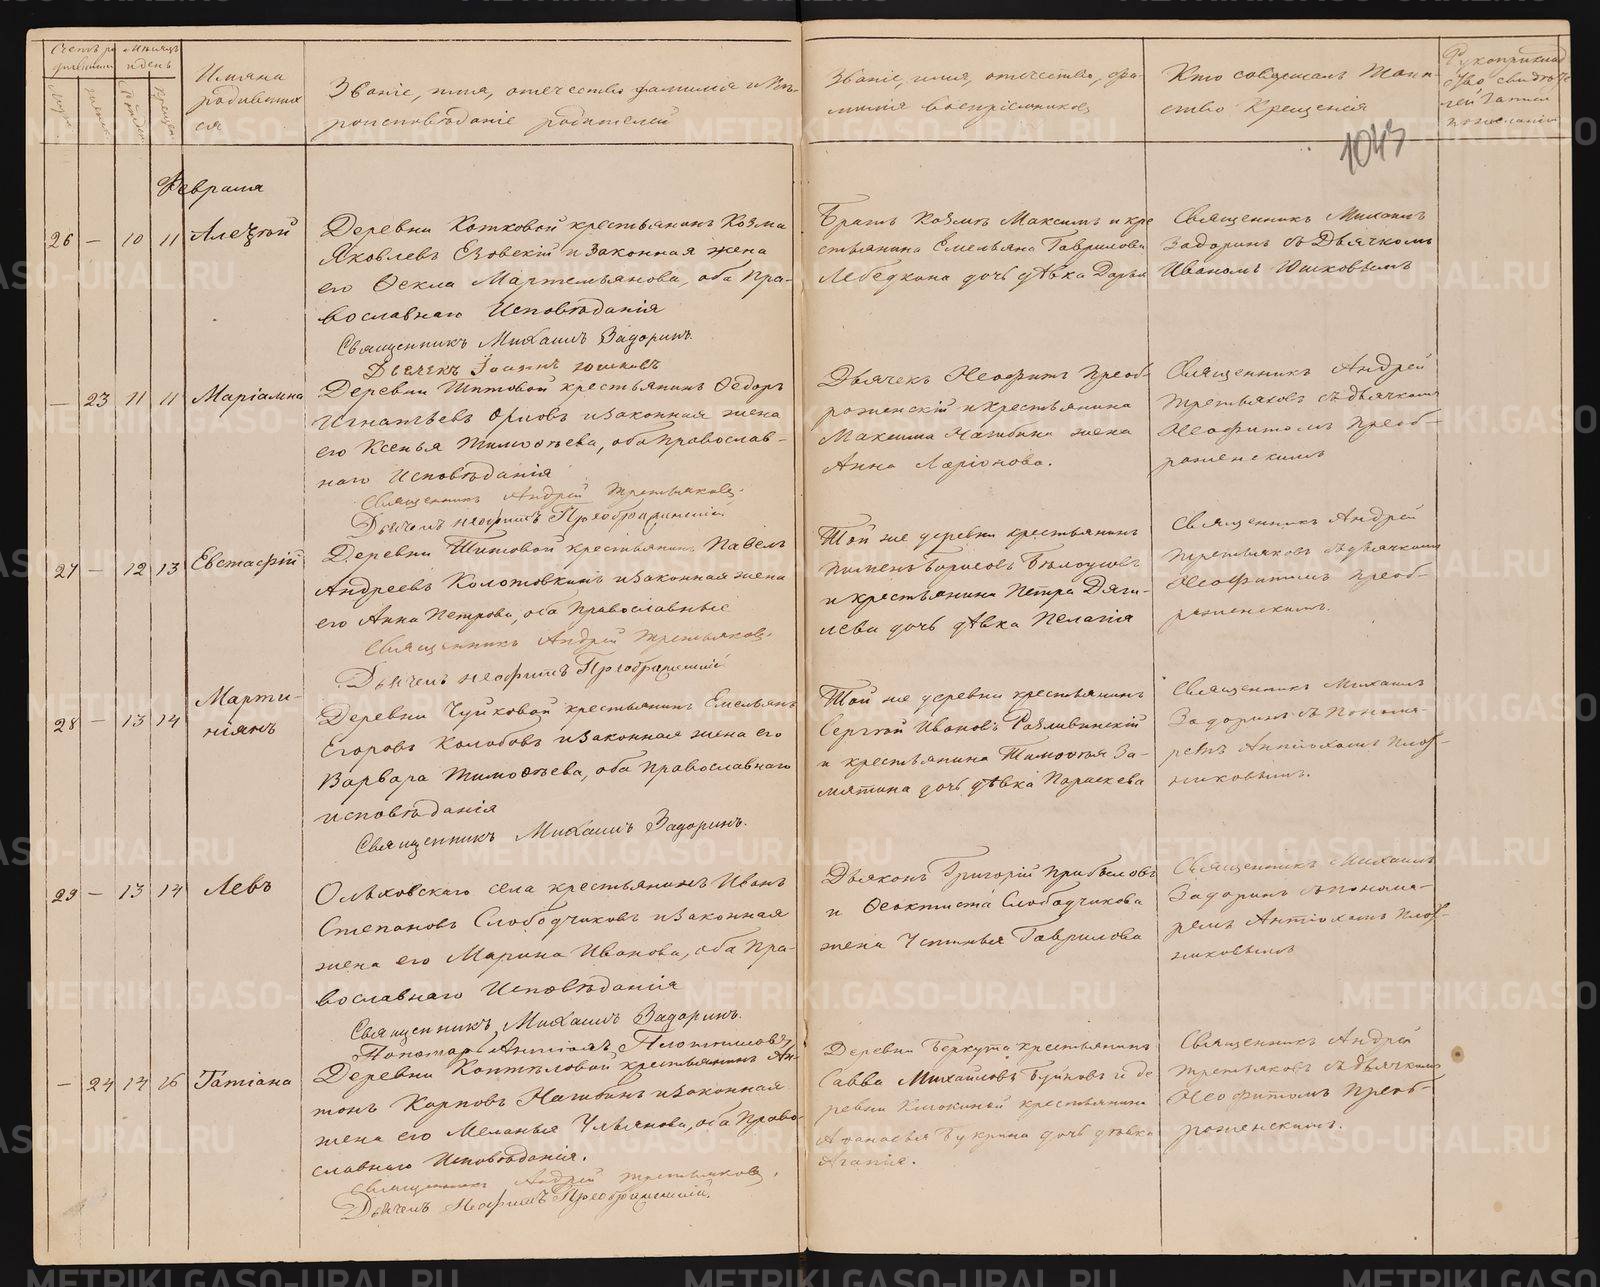 Счетъ ро
дившихся
Мѣсяцъ
и день
Имяна
родивших
ся
Званіе, имя, отечество фамилія и Вѣ-
роисповѣданіе родителей
Званіе, имя, отечество, фа-
милія воспріемниковъ
Кто совершалъ Таин-
ство Крещенія
Рукоприклад
ство свидѣте
лей записи
по желанію
1043
Февраля
26 — 10 11 Алексѣй
Деревни Котковой крестьянинъ Козма
Яковлевъ Езовскій и законная жена
его Ѳекла Мартемьянова, оба Пра-
вославнаго Исповѣданія
Священникъ Михаилъ Задоринъ.
Дьячекъ Іоаннъ Юшковъ
Братъ Козмы Максимъ и кре
стьянина Емельяна Гаврилова
Лебедкина дочь дѣвка Дарья
Священникъ Михаилъ
Задоринъ съ Дьячкомъ
Иваномъ Юшковымъ
— 23 11 11 Маріамна
Деревни Титовой крестьянинъ Ѳедоръ
Игнатьевъ Орловъ и законная жена
его Ксенья Тимоѳеева, оба Православ-
наго Исповѣданія
Священникъ Андрей Третьяковъ.
Дьячекъ Неофитъ Преображенскій
Дьячекъ Неофитъ Преоб-
раженскій и крестьянина
Максима Нагибина жена
Анна Ларіонова.
Священникъ Андрей
Третьяковъ съ дьячкомъ
Неофитомъ Преоб-
раженскимъ
27 — 12 13 Евстафій
Деревни Титовой крестьянинъ Павелъ
Андреевъ Колотовкинъ и законная жена
его Анна Петрова, оба Православные
Священникъ Андрей Третьяковъ.
Дьячекъ Неофитъ Преображенскій
Той же деревни крестьянинъ
Пименъ Борисовъ Бѣлоусовъ
и крестьянина Петра Дяги-
лева дочь дѣвка Пелагія
Священникъ Андрей
Третьяковъ съ дьячкомъ
Неофитомъ Преоб-
раженскимъ.
28 — 13 14 Марти-
ніанъ
Деревни Чуйковой крестьянинъ Емельянъ
Егоровъ Колобовъ и законная жена его
Варвара Тимоѳеева, оба Православнаго
исповѣданія
Священникъ Михаилъ Задоринъ.
Той же деревни крестьянинъ
Сергѣй Ивановъ Разливинскій
и крестьянина Тимоѳея За-
мятина дочь дѣвка Параскева
Священникъ Михаилъ
Задоринъ съ Понома-
ремъ Антіохомъ Плот-
никовымъ.
29 — 13 14 Левъ
Ольховскаго села крестьянинъ Иванъ
Степановъ Слободчиковъ и законная
жена его Марина Иванова, оба Пра-
вославнаго Исповѣданія
Священникъ Михаилъ Задоринъ.
Пономарь Антіохъ Плотниковъ
Дьяконъ Григорій Прибыловъ
и Ѳеоктиста Слободчикова
жена Устинья Гаврилова
Священникъ Михаилъ
Задоринъ съ понома-
ремъ Антіохомъ Плот-
никовымъ
— 24 14 16 Татіана
Деревни Коптяловой крестьянинъ Ан-
тонъ Карповъ Нагибинъ и законная
жена его Меланья Ульянова, оба Право-
славнаго Исповѣданія.
Священникъ Андрей Третьяковъ.
Дьячекъ Неофитъ Преображенскій.
Деревни Беркута крестьянинъ
Савва Михаиловъ Буйновъ и де
ревни Кисокиной крестьянина
Аѳанасья Букрина дочь дѣвка
Агапія.
Священникъ Андрей
Третьяковъ съ дьячкомъ
Неофитомъ Преоб-
раженскимъ.
METRIKI.GASO-URAL.RU